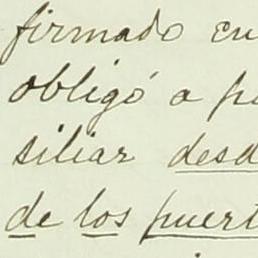 firmado en
obligó a p
siliar desd
de los puert